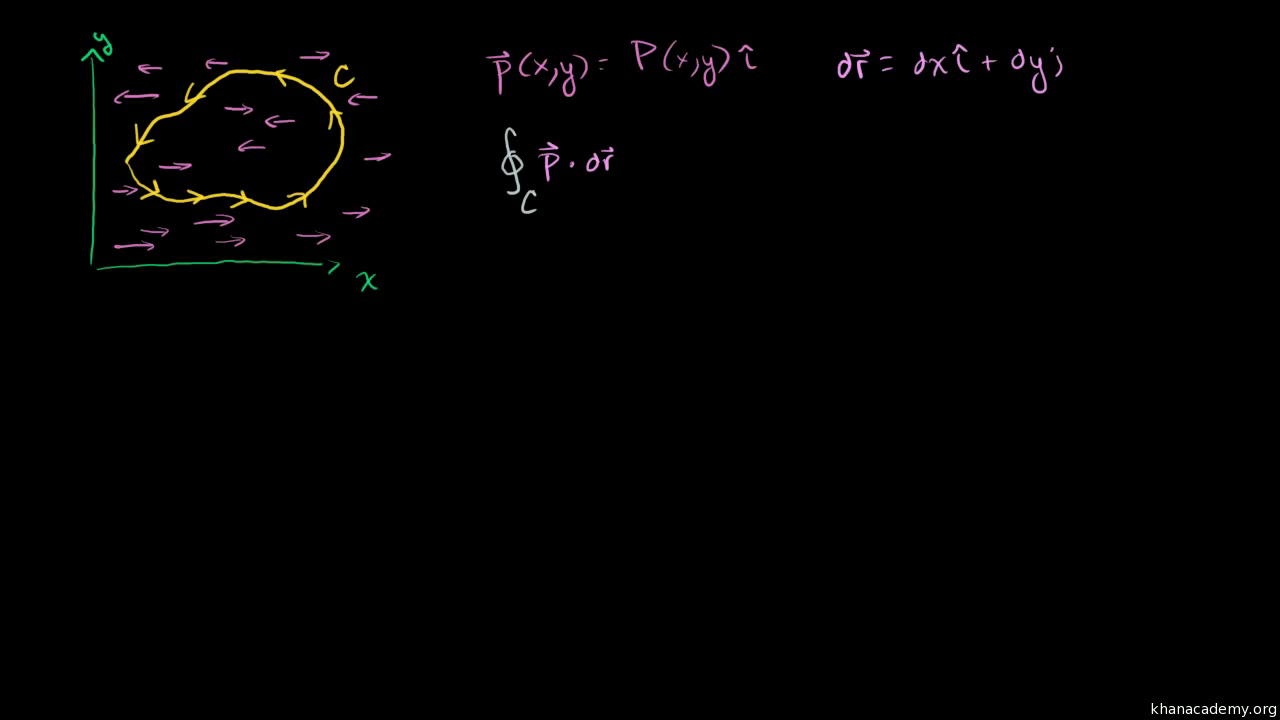 y
C
x
p⃗(x,y) = P(x,y) î
dr⃗ = dx î + dy j
∮_C p⃗ · dr⃗
khanacademy.org